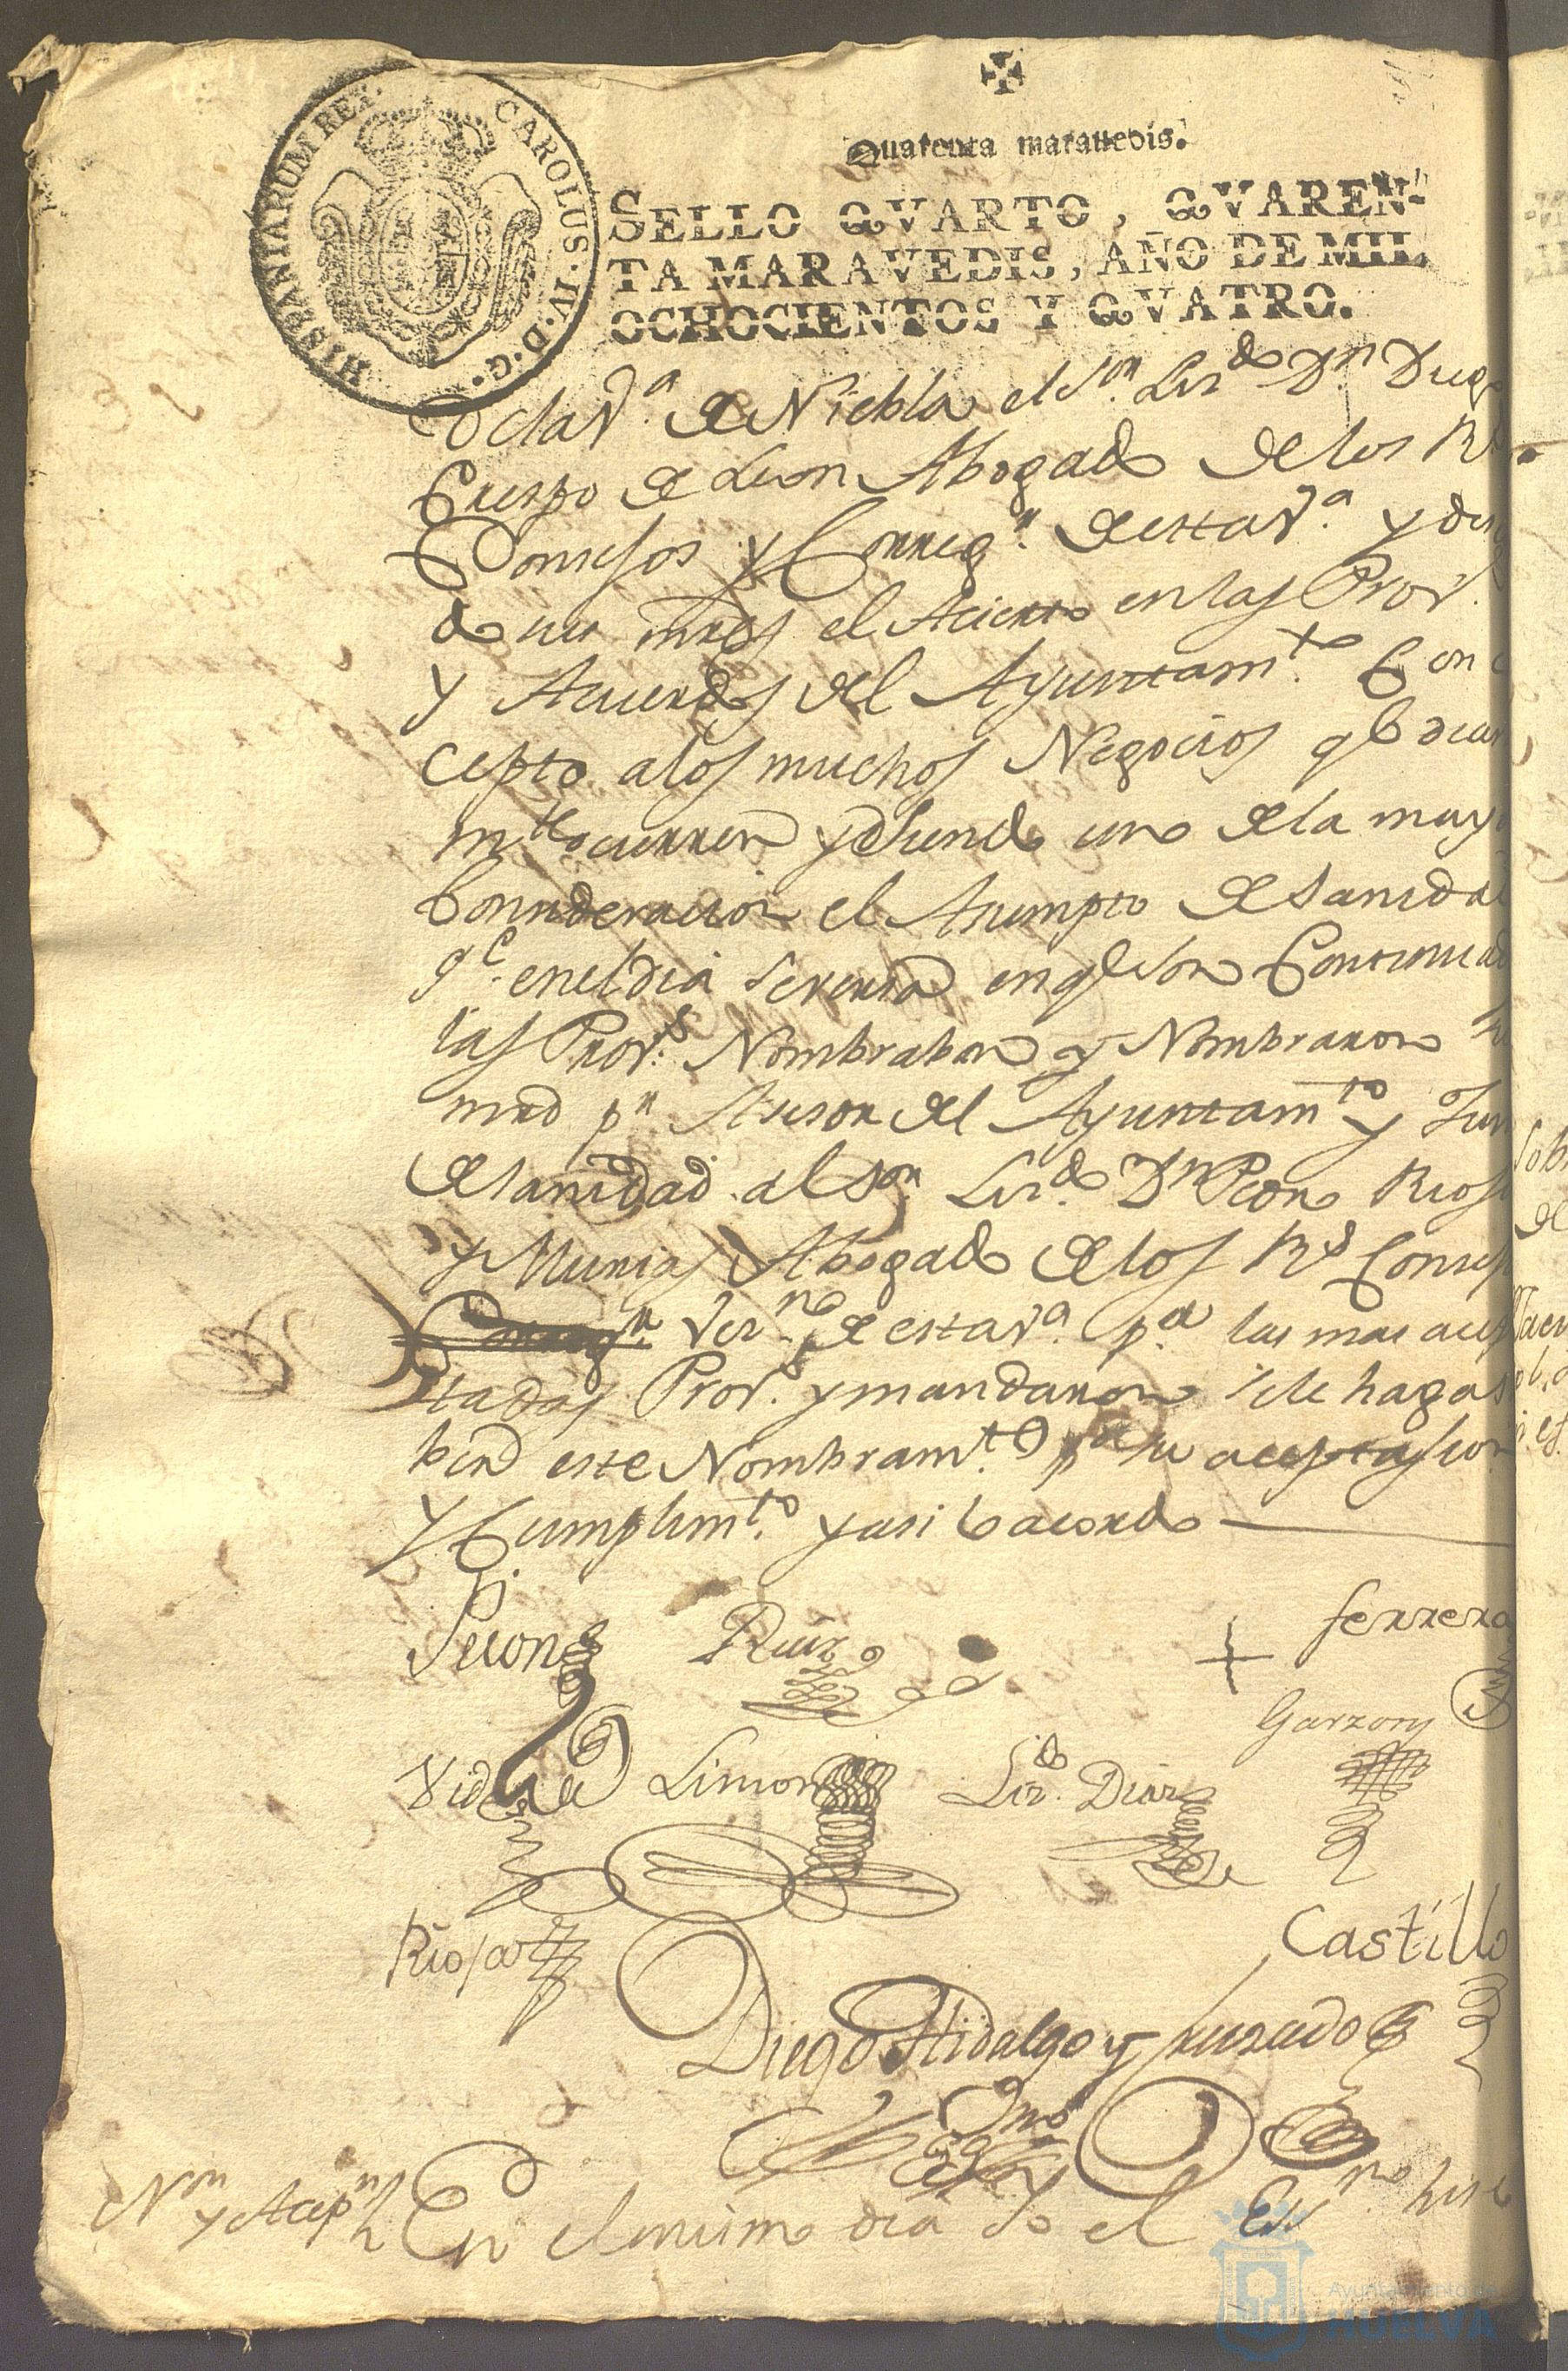 HISPANIARUM REX. CAROLUS. IV. D. G.
Quarenta maravedis.
SELLO QVARTO, QVAREN-
TA MARAVEDIS, AÑO DE MIL
OCHOCIENTOS Y QVATRO.
de la V.ª de Niebla el S.or Liz.do D.n Diego
Crespo de Leon Abogado de los R.s
Consejos y Correg.r de esta V.ª y
el Acierto en las Prov.
y Acuerdos del Ayuntam.to Con
cepto a los muchos Negocios q.e
m.te ocurren y siendo uno de la mayo
Consideracion el Asumpto de Sanidad
q.e en el dia se versa en q.e son Continuad
las Prov.s Nombraban y Nombraron
mrd p.r Asesor del Ayuntam.to y Jun
de sanidad al S.or Liz.do D.n Pedro Rioja
y Munias Abogado de los R.s Consej
Vez.no de esta V.ª p.a las mas acer
tadas Prov.s y mandaron se le haga s
ber este Nombram.to p.a su aceptasion
y Cumplim.to y asi lo acordo
Picon Ruiz + ferrera
Garzon
Vides Limon Liz.do Diaz
Rioja Castillo
Diego Hidalgo y Jurado
Ess.no
N.on y Acep.on En el mismo dia Yo el Ess.no hise
Ayuntamiento de
HUELVA